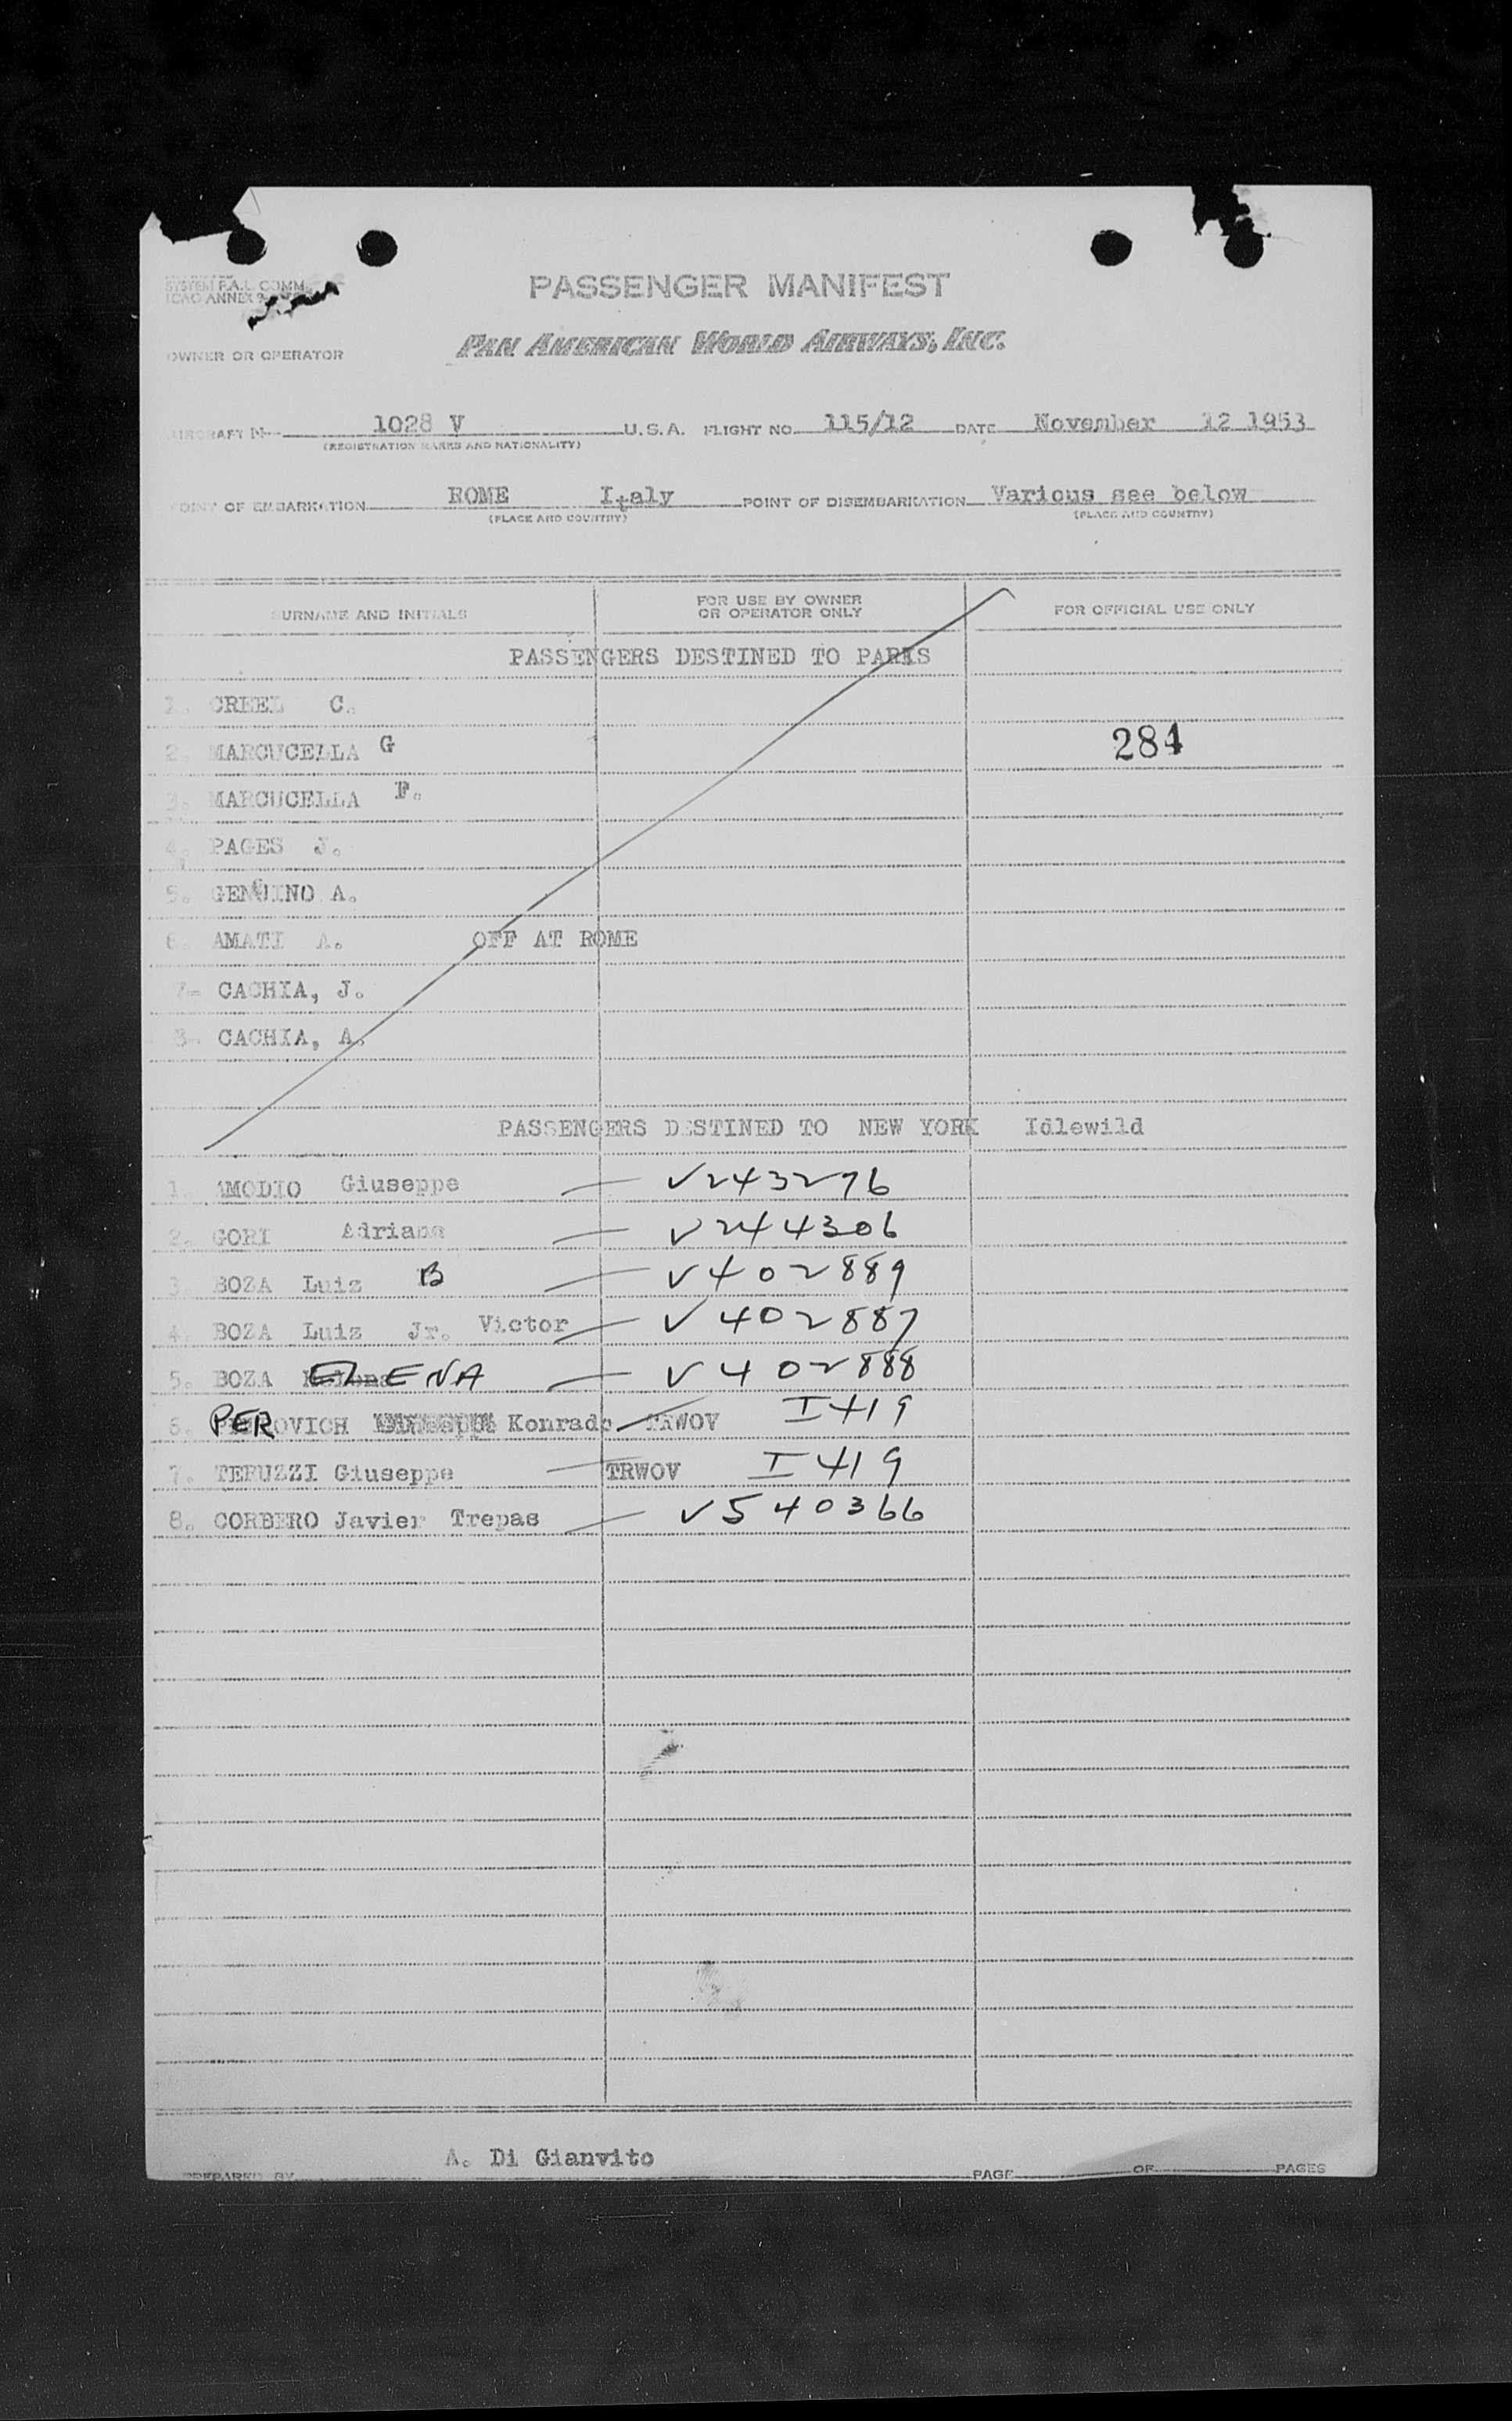 SYSTEM F.A.L. COMM.
ICAO ANNEX 9
PASSENGER MANIFEST
OWNER OR OPERATOR PAN AMERICAN WORLD AIRWAYS, INC.
AIRCRAFT N 1028 V U.S.A. FLIGHT NO. 115/12 DATE November 12 1953
(REGISTRATION MARKS AND NATIONALITY)
POINT OF EMBARKATION ROME Italy POINT OF DISEMBARKATION Various see below
(PLACE AND COUNTRY) (PLACE AND COUNTRY)
SURNAME AND INITIALS FOR USE BY OWNER OR OPERATOR ONLY FOR OFFICIAL USE ONLY
PASSENGERS DESTINED TO PARIS
1. CREEL C.
2. MARCUCELLA G 284
3. MARCUCELLA F.
4. PAGES J.
5. GENUINO A.
6. AMATI A. OFF AT ROME
7- CACHIA, J.
8- CACHIA, A.
PASSENGERS DESTINED TO NEW YORK Idlewild
1. AMODIO Giuseppe — V243276
2. GORI Adriana — V244306
3. BOZA Luiz B — V402889
4. BOZA Luiz Jr. Victor — V402887
5. BOZA ELENA — V402888
6. PEROVICH Konrado — TRWOV I419
7. TERUZZI Giuseppe — TRWOV I419
8. CORBERO Javier Trepas — V540366
PREPARED BY A. Di Gianvito PAGE OF PAGES